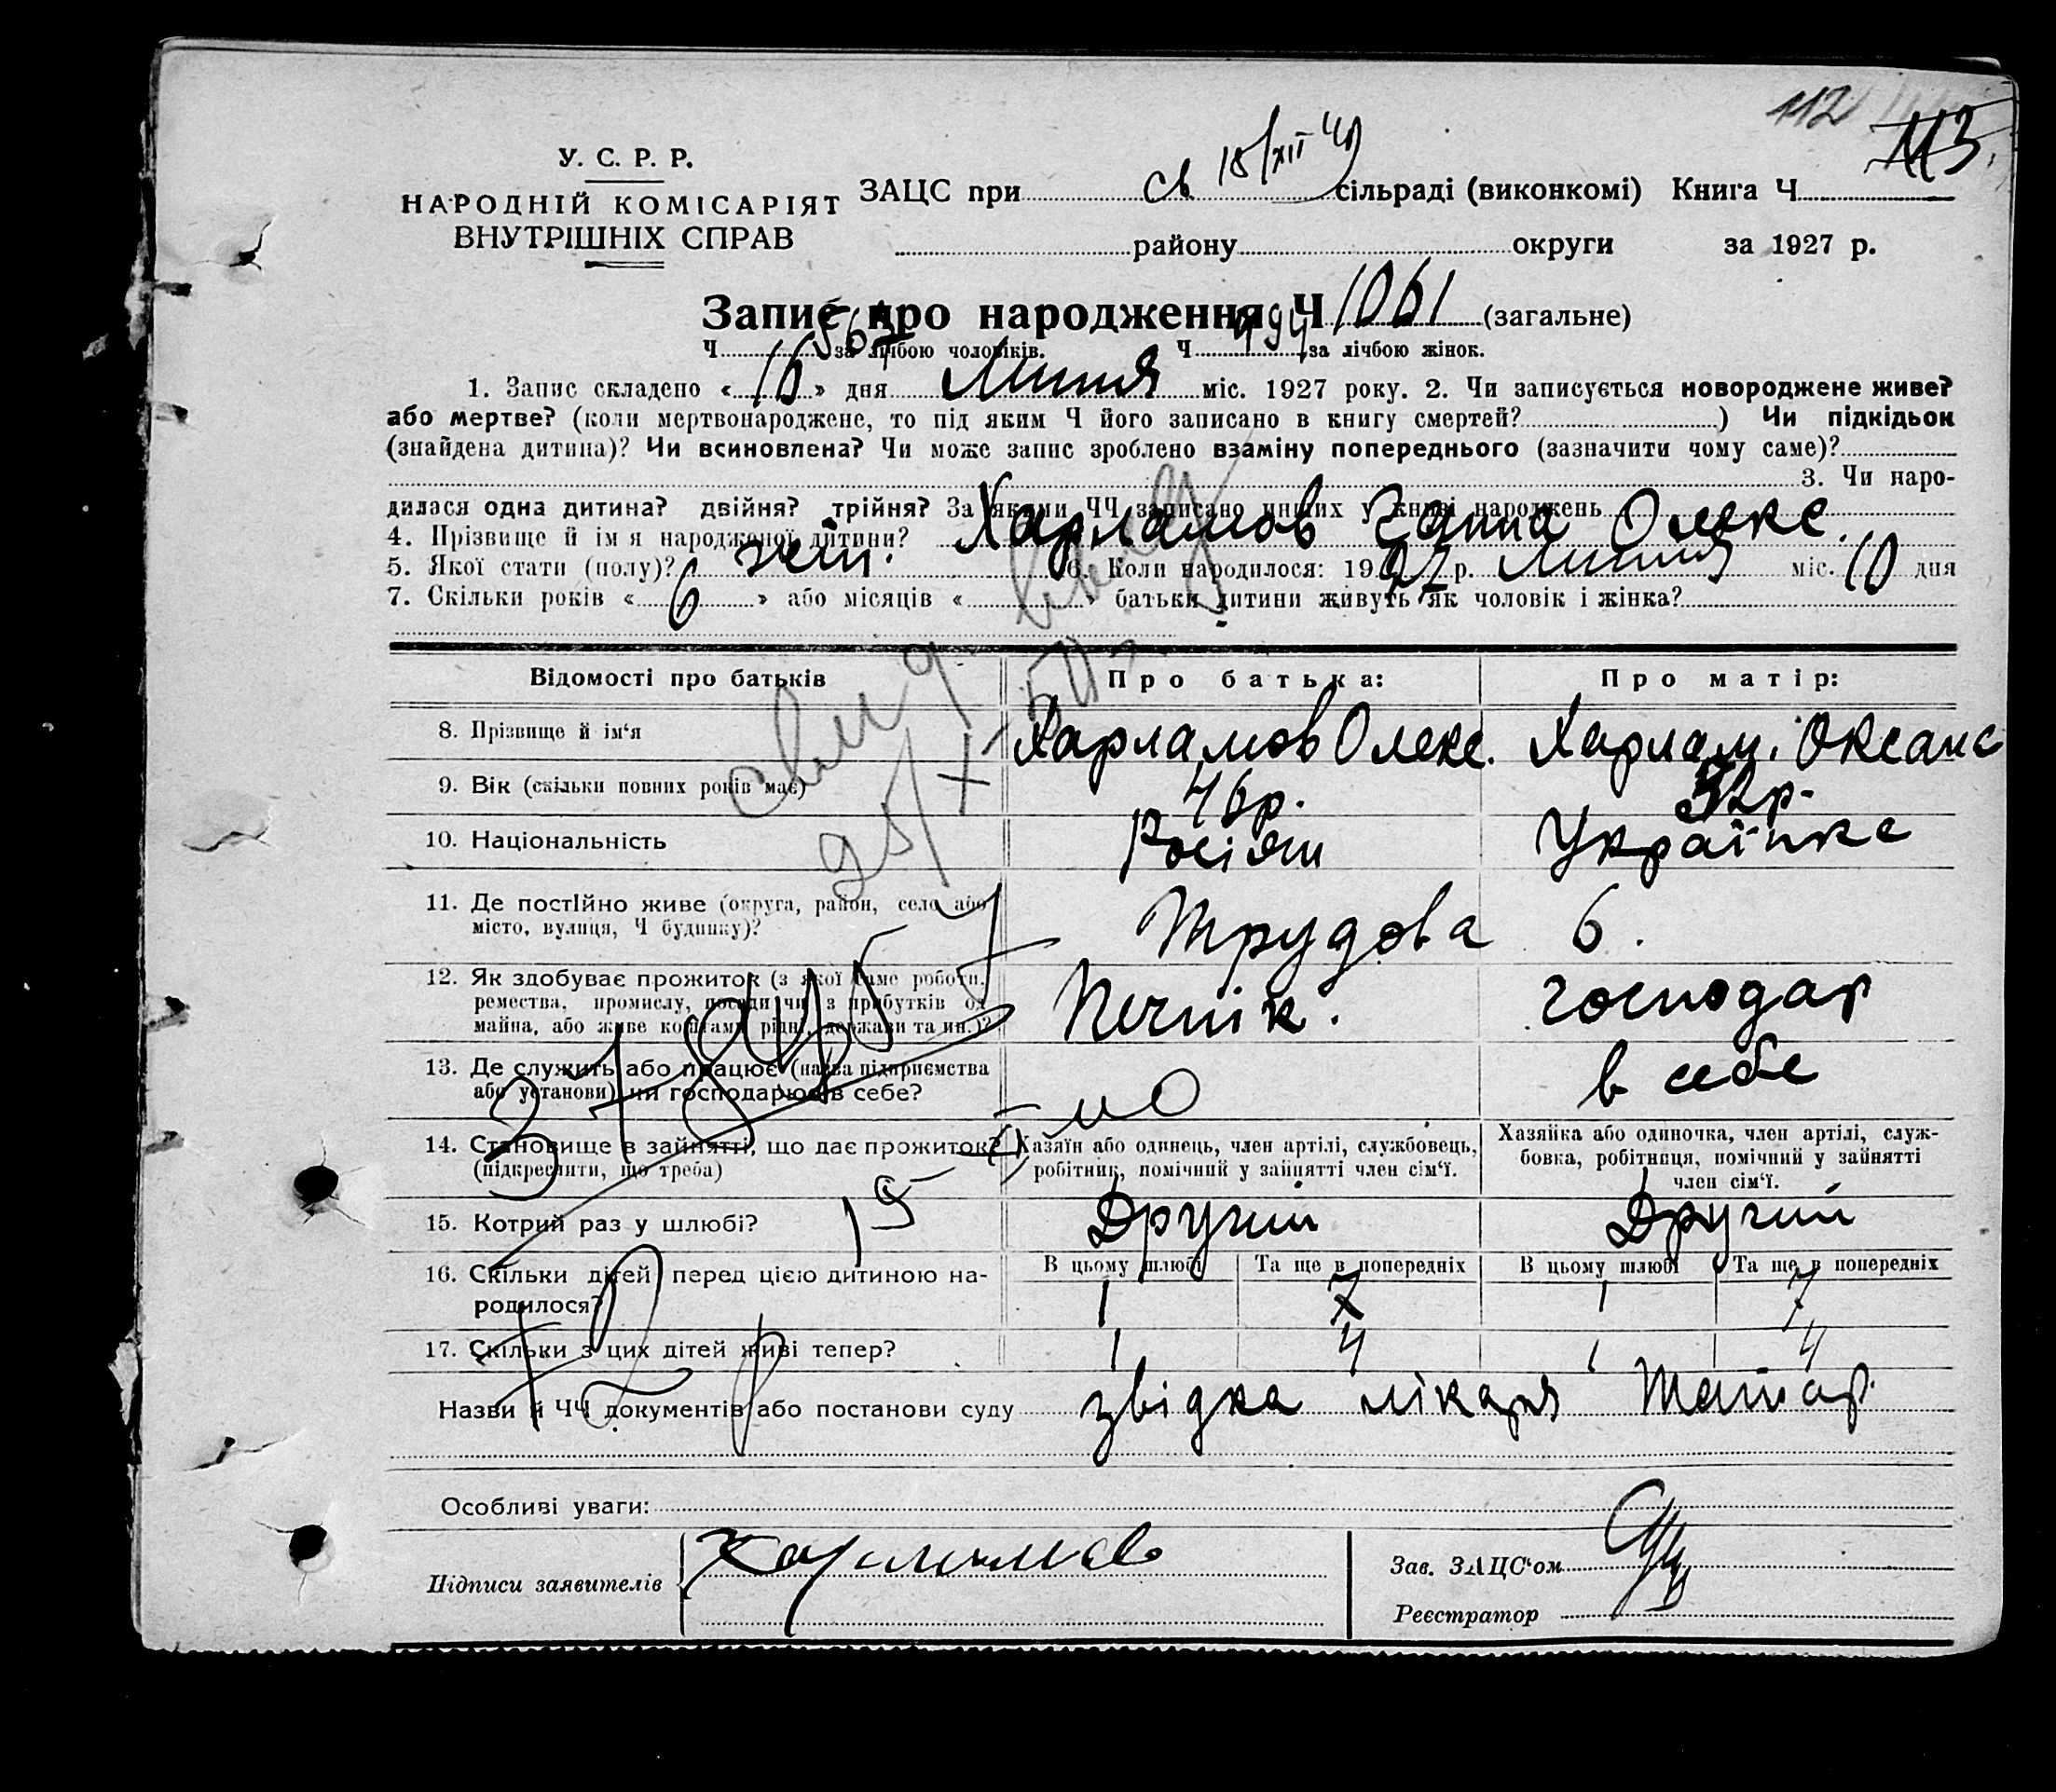 112
113.
У. С. Р. Р.
НАРОДНІЙ КОМІСАРІЯТ
ВНУТРІШНІХ СПРАВ
ЗАЦС при св 18/XII 40 сільраді (виконкомі) Книга Ч
району округи за 1927 р.
Запис про народження Ч 1061 (загальне)
Ч 567 за лічбою чоловіків. Ч 494 за лічбою жінок.
1. Запис складено «16» дня Липня міс. 1927 року. 2. Чи записується новороджене живе?
або мертве? (коли мертвонароджене, то під яким Ч його записано в книгу смертей? ) Чи підкідьок
(знайдена дитина)? Чи всиновлена? Чи може запис зроблено взаміну попереднього (зазначити чому саме)?
3. Чи наро-
дилася одна дитина? двійня? трійня? За якими ЧЧ записано инших у книзі народжень
4. Прізвище й ім я народженої дитини? Харламов Ганна Олекс.
5. Якої стати (полу)? жін. 6. Коли народилося: 1927 р. Липня міс. 10 дня
7. Скільки років «6» або місяців « » батьки дитини живуть як чоловік і жінка?
Відомості про батьків Про батька: Про матір:
8. Прізвище й ім‘я Харламов Олекс. Харлам. Оксана
9. Вік (скільки повних років має) 46р. 32р.
10. Національність Росіян Українка
11. Де постійно живе (округа, район, село або
місто, вулиця, Ч будинку)? Трудова 6.
12. Як здобуває прожиток (з якої саме роботи,
ремества, промислу, посади чи з прибутків од
майна, або живе коштами рідні, держави та ин.)? Печнік. господар
13. Де служить або працює (назва підприємства
або установи) чи господарює в себе? в себе
14. Становище в зайнятті, що дає прожиток?
(підкреслити, що треба)
Хазяїн або одинець, член артілі, службовець,
робітник, помічний у зайнятті член сім‘ї.
Хазяйка або одиночка, член артілі, служ-
бовка, робітниця, помічний у зайнятті
член сім‘ї.
15. Котрий раз у шлюбі? Другий Другий
16. Скільки дітей перед цією дитиною на-
родилося?
В цьому шлюбі Та ще в попередніх В цьому шлюбі Та ще в попередніх
1 7 1 7
17. Скільки з цих дітей живі тепер? 1 4 1 4
Назви й ЧЧ документів або постанови суду звідка лікаря
Особливі уваги:
Підписи заявителів Харламов
Зав. ЗАЦС‘ом
Реєстратор